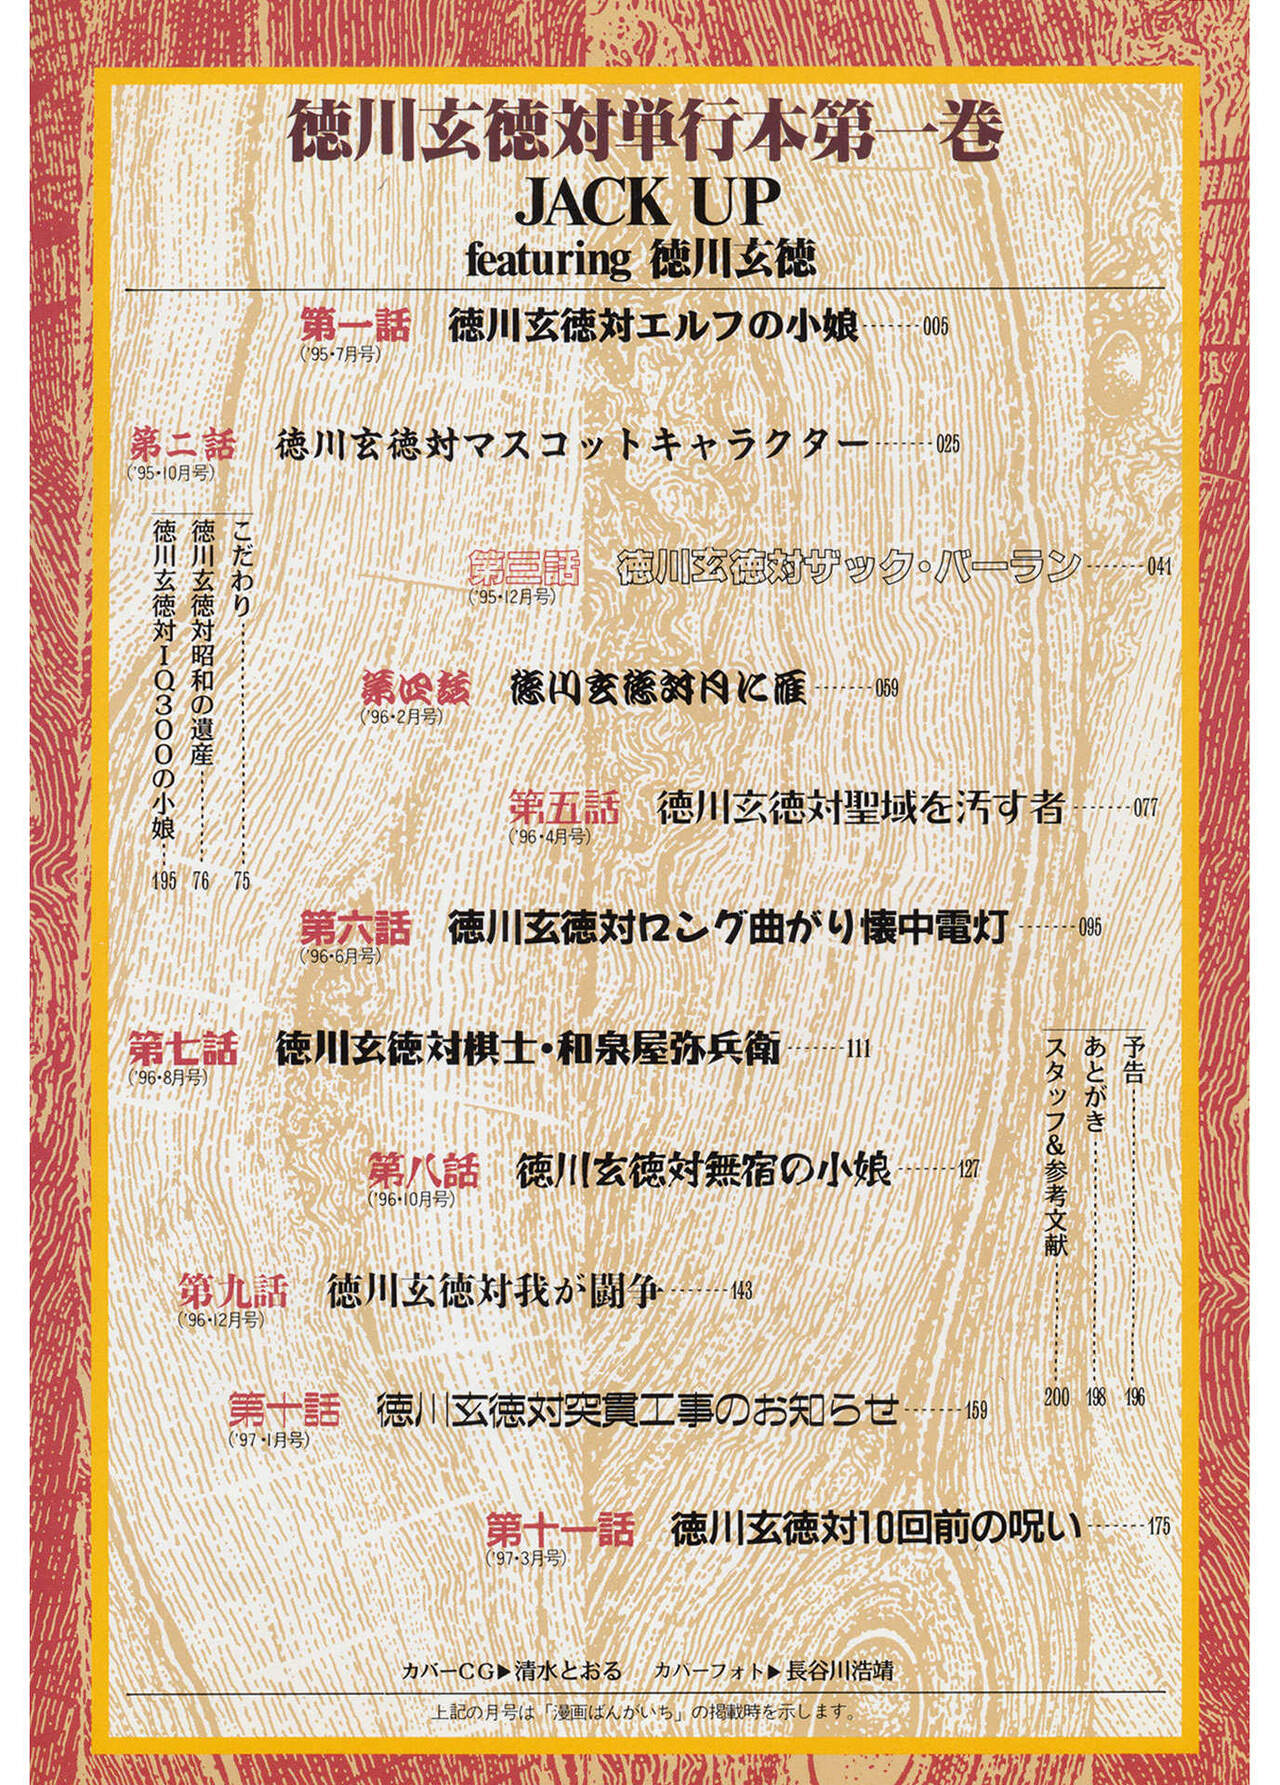 徳川玄徳対単行本第一巻
JACK UP
featuring 徳川玄徳
第一話 徳川玄徳対エルフの小娘-------005
('95・7月号)
第二話 徳川玄徳対マスコットキャラクター-------025
('95・10月号)
第三話 徳川玄徳対ザック・バーラン-------041
('95・12月号)
第四話 徳川玄徳対月に雁-------059
('96・2月号)
第五話 徳川玄徳対聖域を汚す者-------077
('96・4月号)
第六話 徳川玄徳対ロング曲がり懐中電灯-------095
('96・6月号)
第七話 徳川玄徳対棋士・和泉屋弥兵衛-------111
('96・8月号)
第八話 徳川玄徳対無宿の小娘-------127
('96・10月号)
第九話 徳川玄徳対我が闘争-------143
('96・12月号)
第十話 徳川玄徳対突貫工事のお知らせ-------159
('97・1月号)
第十一話 徳川玄徳対10回前の呪い-------175
('97・3月号)
こだわり……75
徳川玄徳対昭和の遺産……76
徳川玄徳対IQ300の小娘……195
予告……196
あとがき……198
スタッフ&参考文献……200
カバーCG▶清水とおる カバーフォト▶長谷川浩靖
上記の月号は「漫画ばんがいち」の掲載時を示します。